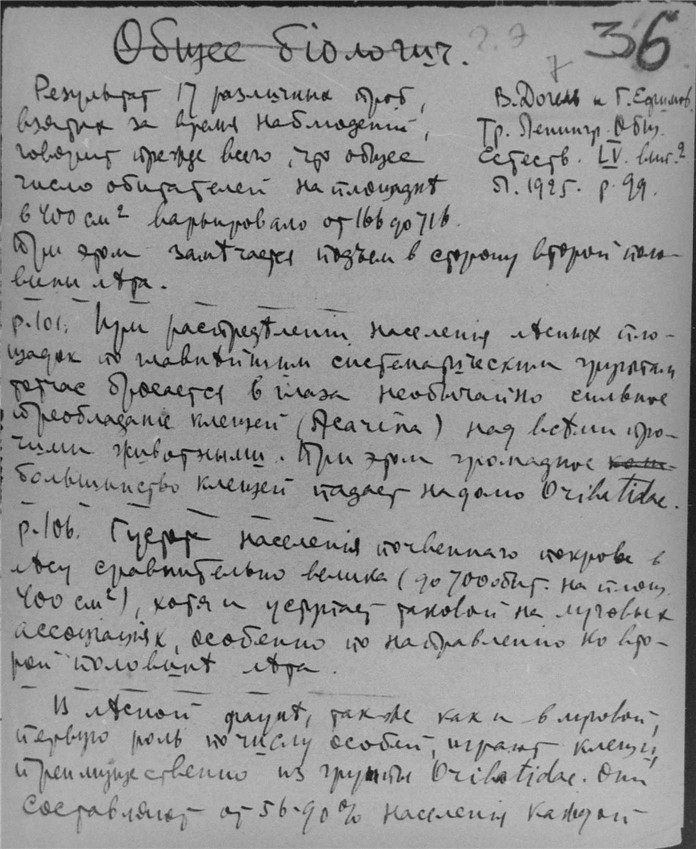 Общее біологич.
36
7
Результат 17 различных проб,
взятых за время наблюденій,
говорит прежде всего, что общее
число обитателей на площадкѣ
в 400 см² варьировало от 166 до 716.
При этом замѣчается подъем в сторону второй поло-
вины лѣта.
В. Догель и Г. Ефимов.
Тр. Ленингр. Общ.
Естеств. LV. вып. 2
Л. 1925. р. 99.
р. 101. При распредѣленіи населенія лѣсных пло-
щадок по главнѣйшим систематическим группам
тотчас бросается в глаза необычайно сильное
преобладаніе клещей (Acarina) над всѣми про-
чими животными. При этом громадное
большинство клещей падает на долю Oribatidae.
р. 106. Густота населенія почвеннаго покрова в
лѣсу сравнительно велика (до 700 обит. на площ.
400 см²), хотя и уступает таковой на луговых
ассоціаціях, особенно по направленію ко вто-
рой половинѣ лѣта.
В лѣсной фаунѣ, так же как и в луговой,
первую роль по числу особей играют клещи,
преимущественно из группы Oribatidae. Они
составляют от 56-90% населенія каждой